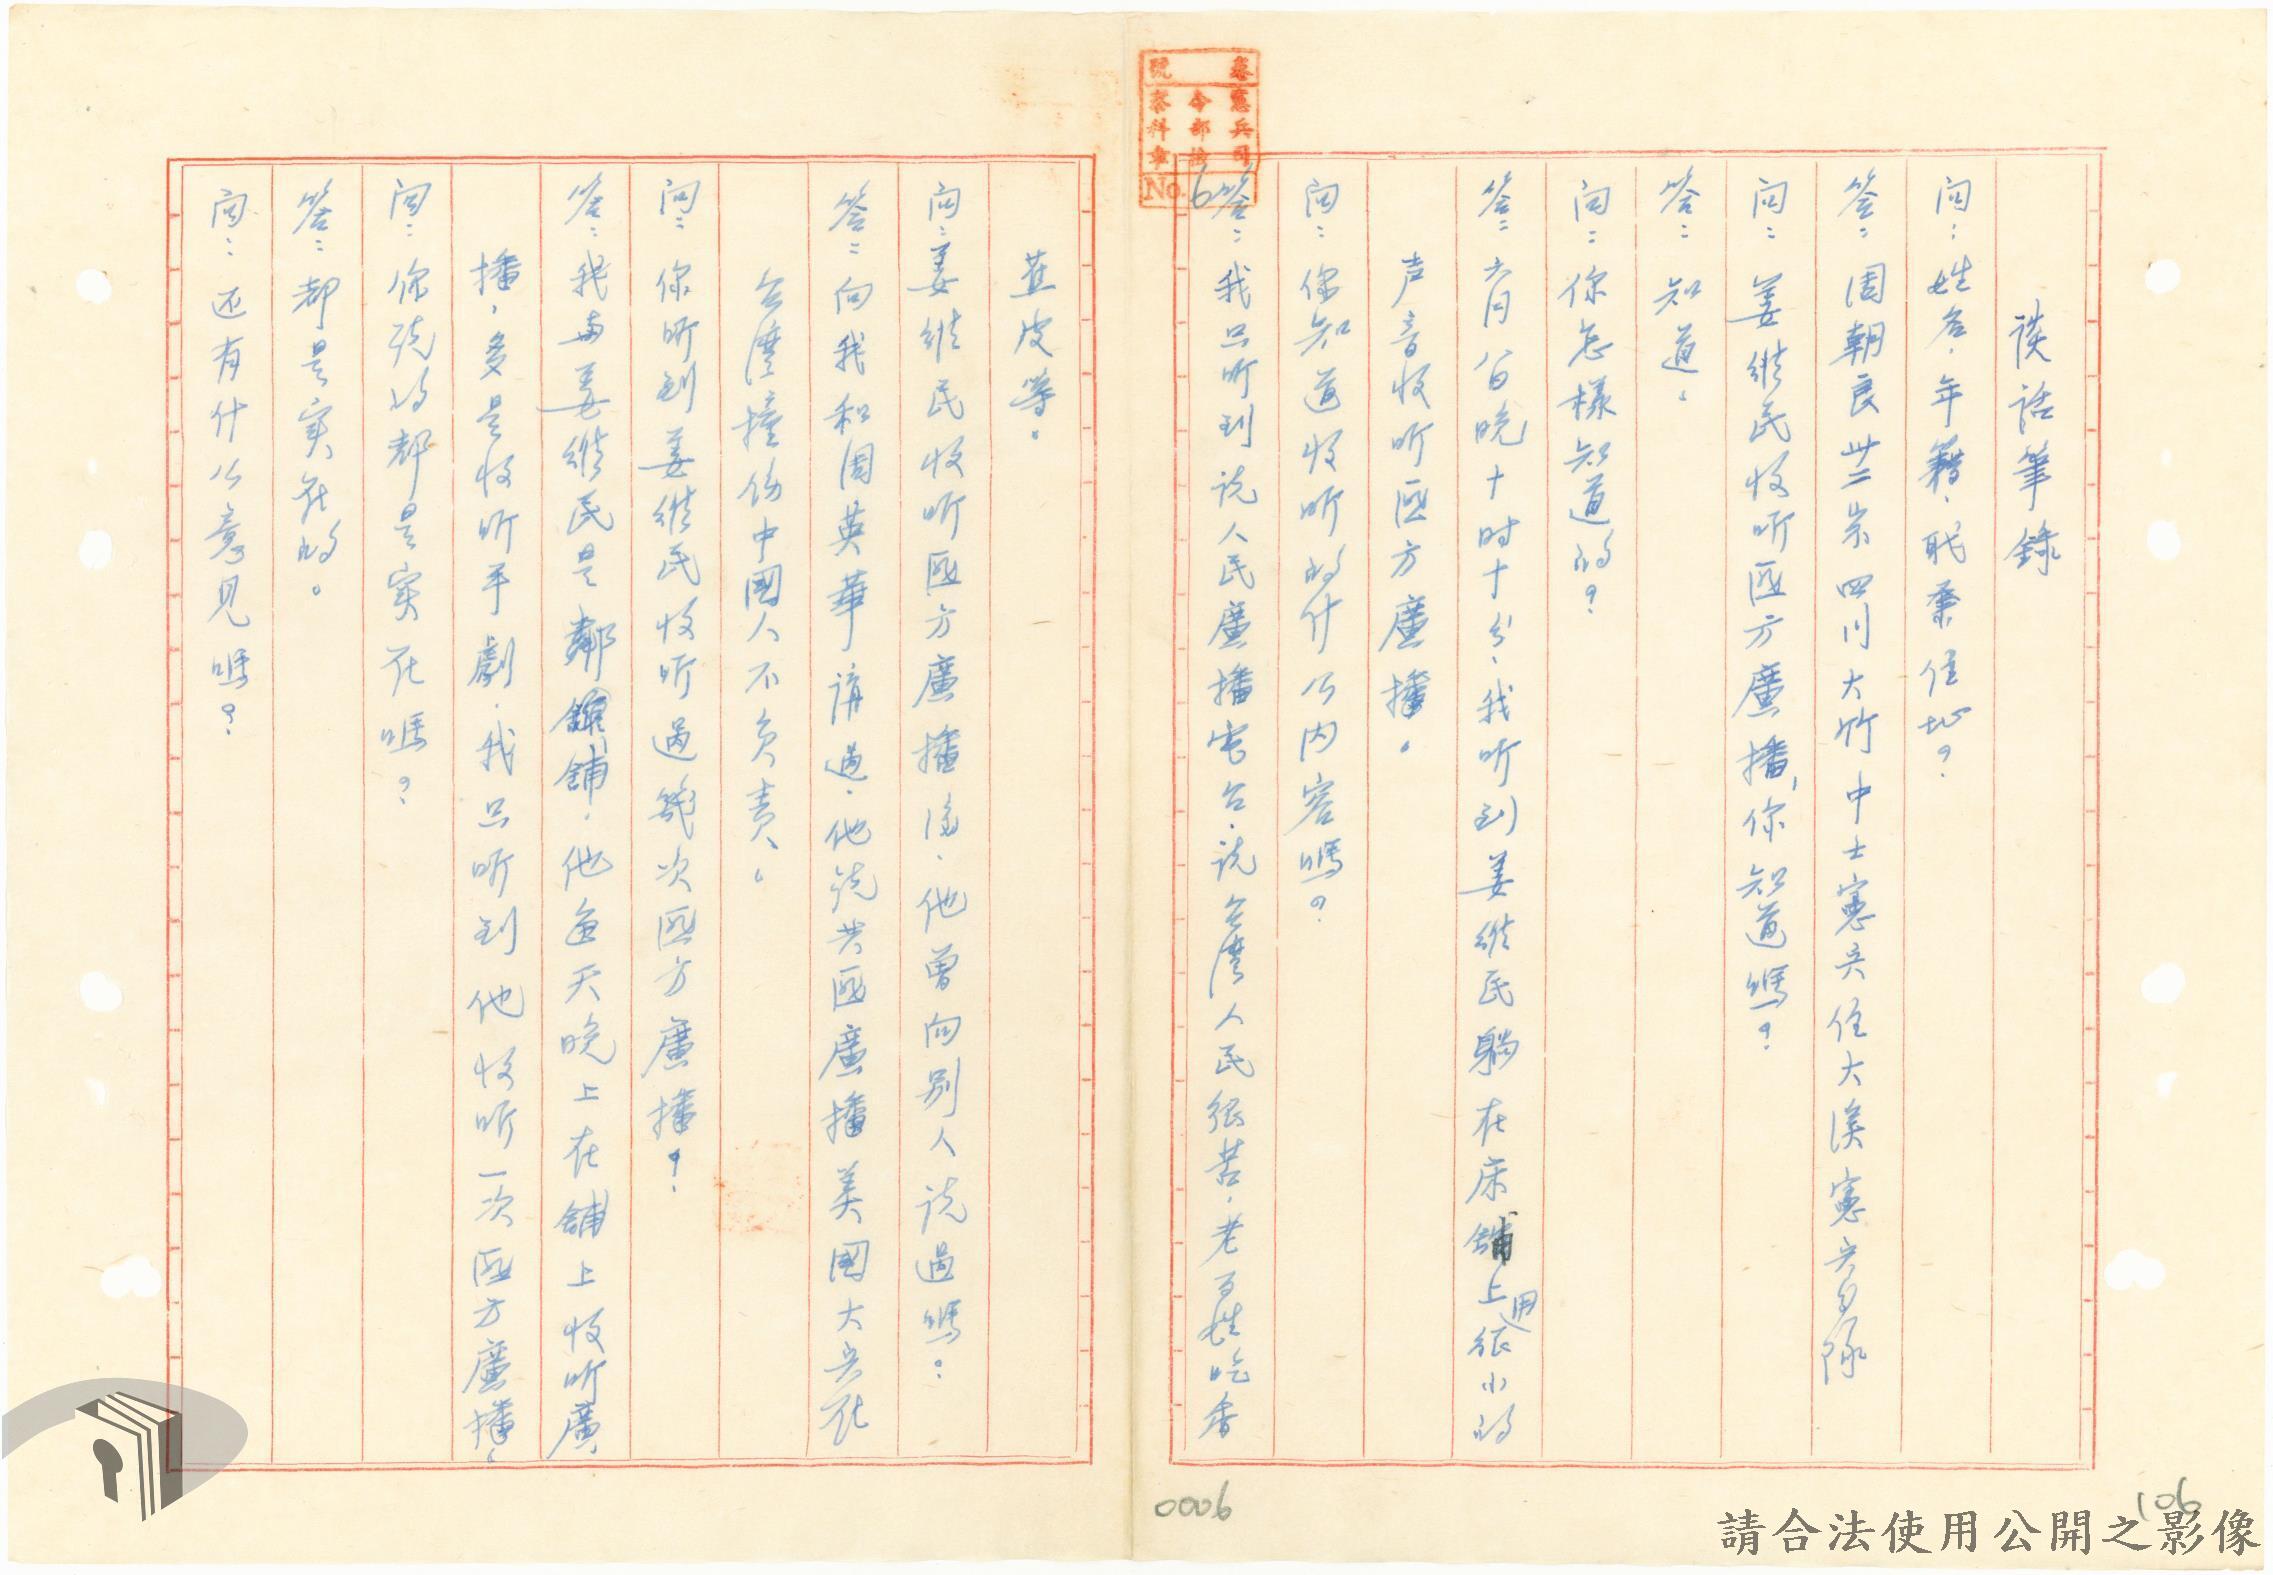 談話筆錄
问：姓名、年籍、耺業住地？
答：周朝良卅二岁四川大竹中士憲兵住大溪憲兵分隊
问：姜維民收听匪方廣播，你知道嗎？
答：知道。
问：你怎樣知道的？
答：六月八日晚十时十分、我听到姜維民躺在床舖上用很小的
声音收听匪方廣播。
问：你知道收听的什么内容嗎？
答：我只听到说人民廣播电台、说台湾人民很苦、老百姓吃香
蕉皮等。
问：姜維民收听匪方廣播後、他曾向别人说過嗎？
答：向我和周英華講過、他说共匪廣播美國大兵在
台灣撞伤中國人不负责。
问：你听到姜維民收听過幾次匪方廣播？
答：我與姜維民是鄰舖、他每天晚上在舖上收听廣
播，多是收听平劇、我只听到他收听一次匪方廣播。
问：你说的都是实在嗎？
答：都是实在的。
问：还有什么意見嗎？
號
憲兵司令部檢察科章
No. 6
0006
106
請合法使用公開之影像